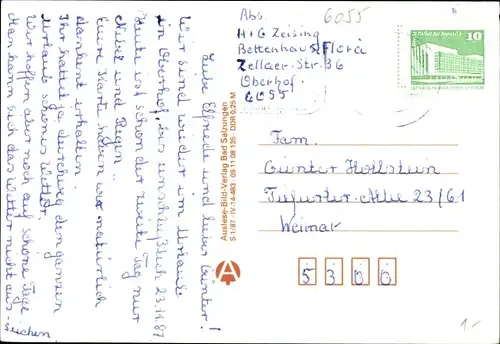 Abs.
6055
H+G Zeising
Bettenhaus Flora
Zellaer-Str. 36
Oberhof
6055
10
Liebe Elfriede und lieber Günter!
Wir sind wieder im Urlaub
in Oberhof, bis einschließlich 23.11.87
Heute ist schon der zweite Tag nur
Nebel und Regen.
Eure Karte haben wir natürlich
dankend erhalten.
Ihr hattet ja durchweg den ganzen
Urlaub schönes Wetter.
Wir hoffen aber noch auf schöne Tage
Man kann sich das Wetter nicht aus-
suchen
Auslese-Bild-Verlag Bad Salzungen
S 1/87 · IV-14-483 · 09 11 08 135 · DDR 0,25 M
A
Fam.
Günter Hollstein
Tiefurter-Allee 23/61
Weimar
5300
1.-